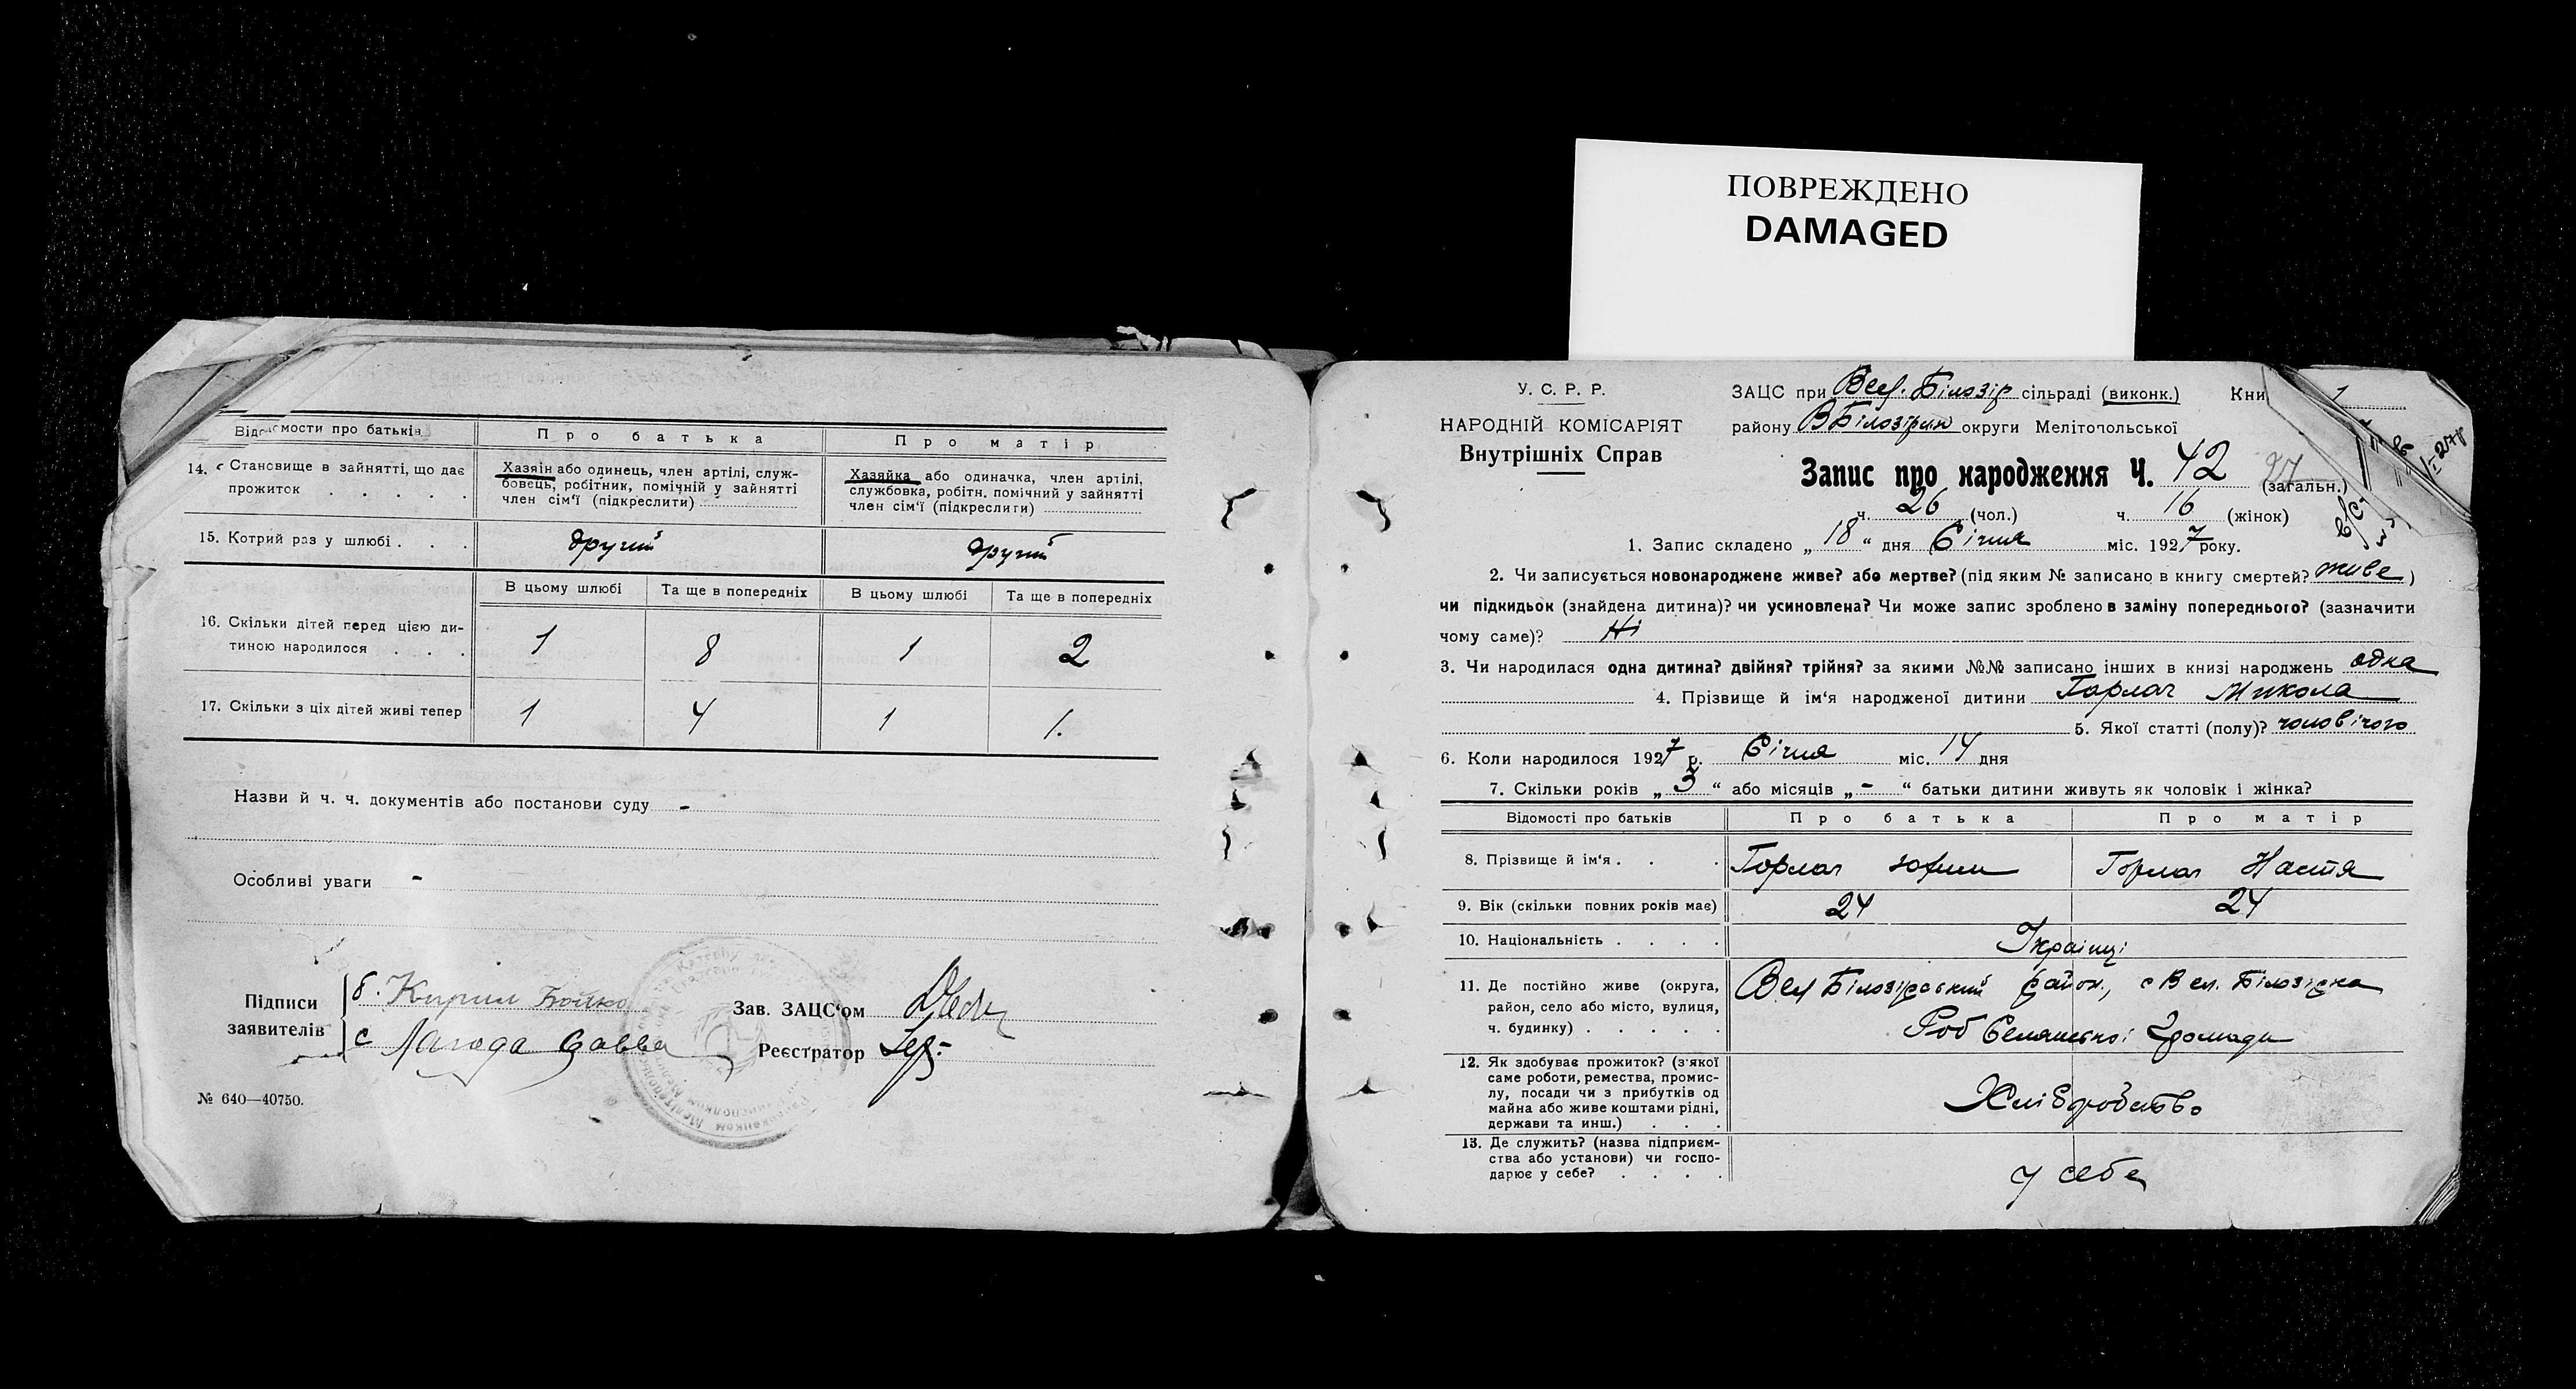 ПОВРЕЖДЕНО
DAMAGED
Відомости про батьків Про батька Про матір
14. Становище в зайнятті, що дає прожиток . . . . .
Хазяін або одинець, член артілі, служ-
бовець, робітник, помічній у зайнятті
член сім'ї (підкреслити)
Хазяйка або одиначка, член артілі,
службовка, робітн. помічний у зайнятті
член сім'ї (підкреслити)
15. Котрий раз у шлюбі . . . другий другий
В цьому шлюбі Та ще в попередніх В цьому шлюбі Та ще в попередніх
16. Скільки дітей перед цією ди-
тиною народилося . . . 1 8 1 2
17. Скільки з ціх дітей живі тепер 1 4 1 1.
Назви й ч. ч. документів або постанови суду -
Особливі уваги -
Підписи
заявителів
б. Кирил Бойко
с Лагода Савва
Зав. ЗАЦС'ом
Реєстратор
№ 640—40750.
У. С. Р. Р.
НАРОДНІЙ КОМІСАРІЯТ
Внутрішніх Справ
ЗАЦС при Вел. Білозір сільраді (виконк.) Кни 1
району ВБілозірки округи Мелітопольської
Запис про народження Ч. 42 (загальн.)
ч. 26 (чол.) ч. 16 (жінок)
1. Запис складено „ 18 “ дня Січня міс. 1927 року.
2. Чи записується новонароджене живе? або мертве? (під яким № записано в книгу смертей? живе)
чи підкидьок (знайдена дитина)? чи усиновлена? Чи може запис зроблено в заміну попереднього? (зазначити
чому саме)? Ні
3. Чи народилася одна дитина? двійня? трійня? за якими №№ записано інших в книзі народжень одна
4. Прізвище й ім'я народженої дитини Горлач Микола
5. Якої статті (полу)? чоловічого
6. Коли народилося 1927 р. Січня міс. 14 дня
7. Скільки років „ 3 “ або місяців „ - “ батьки дитини живуть як чоловік і жінка?
Відомості про батьків Про батька Про матір
8. Прізвище й ім'я . . . Горлач Юхим Горлач Настя
9. Вік (скільки повних років має) 24 24
10. Національність . . . . Українці
11. Де постійно живе (округа,
район, село або місто, вулиця,
ч. будинку) . . . . .
Вел Білозірський район, с Вел. Білозірка
Роб Селянської Громади
12. Як здобуває прожиток? (з'якої
саме роботи, ремества, промис-
лу, посади чи з прибутків од
майна або живе коштами рідні,
держави та инш.) . . .
Хліборобство
13. Де служить? (назва підприєм-
ства або установи) чи госпо-
дарює у себе? . . . .
у себе